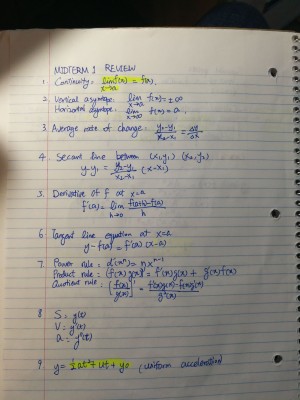 MIDTERM 1 REVIEW
1. Continuity: lim f(x) = f(a),
x→a
2. Vertical asymtope: lim f(x) = ±∞
x→a
Horizontal asymtope: lim f(x) = a.
x→∞
3. Average rate of change: y₂-y₁/x₂-x₁ = Δy/Δx
4. Secant line between (x₁,y₁) (x₂,y₂)
y-y₁ = y₂-y₁/x₂-x₁ (x-x₁)
5. Derivative of f at x=a
f'(a) = lim f(a+h)-f(a)/h
h→0
6. Tangent line equation at x=a
y - f(a) = f'(a) (x-a)
7. Power rule: d(xⁿ) = nxⁿ⁻¹
Product rule: (f(x)g(x))' = f'(x)g(x) + g'(x)f(x)
Quotient rule: [f(x)/g(x)]' = f'(x)g(x)-f(x)g'(x)/g²(x)
8 S = y(t)
V = y'(t)
a = y''(t)
9. y = ½at² + ut + y₀ (uniform acceleration)